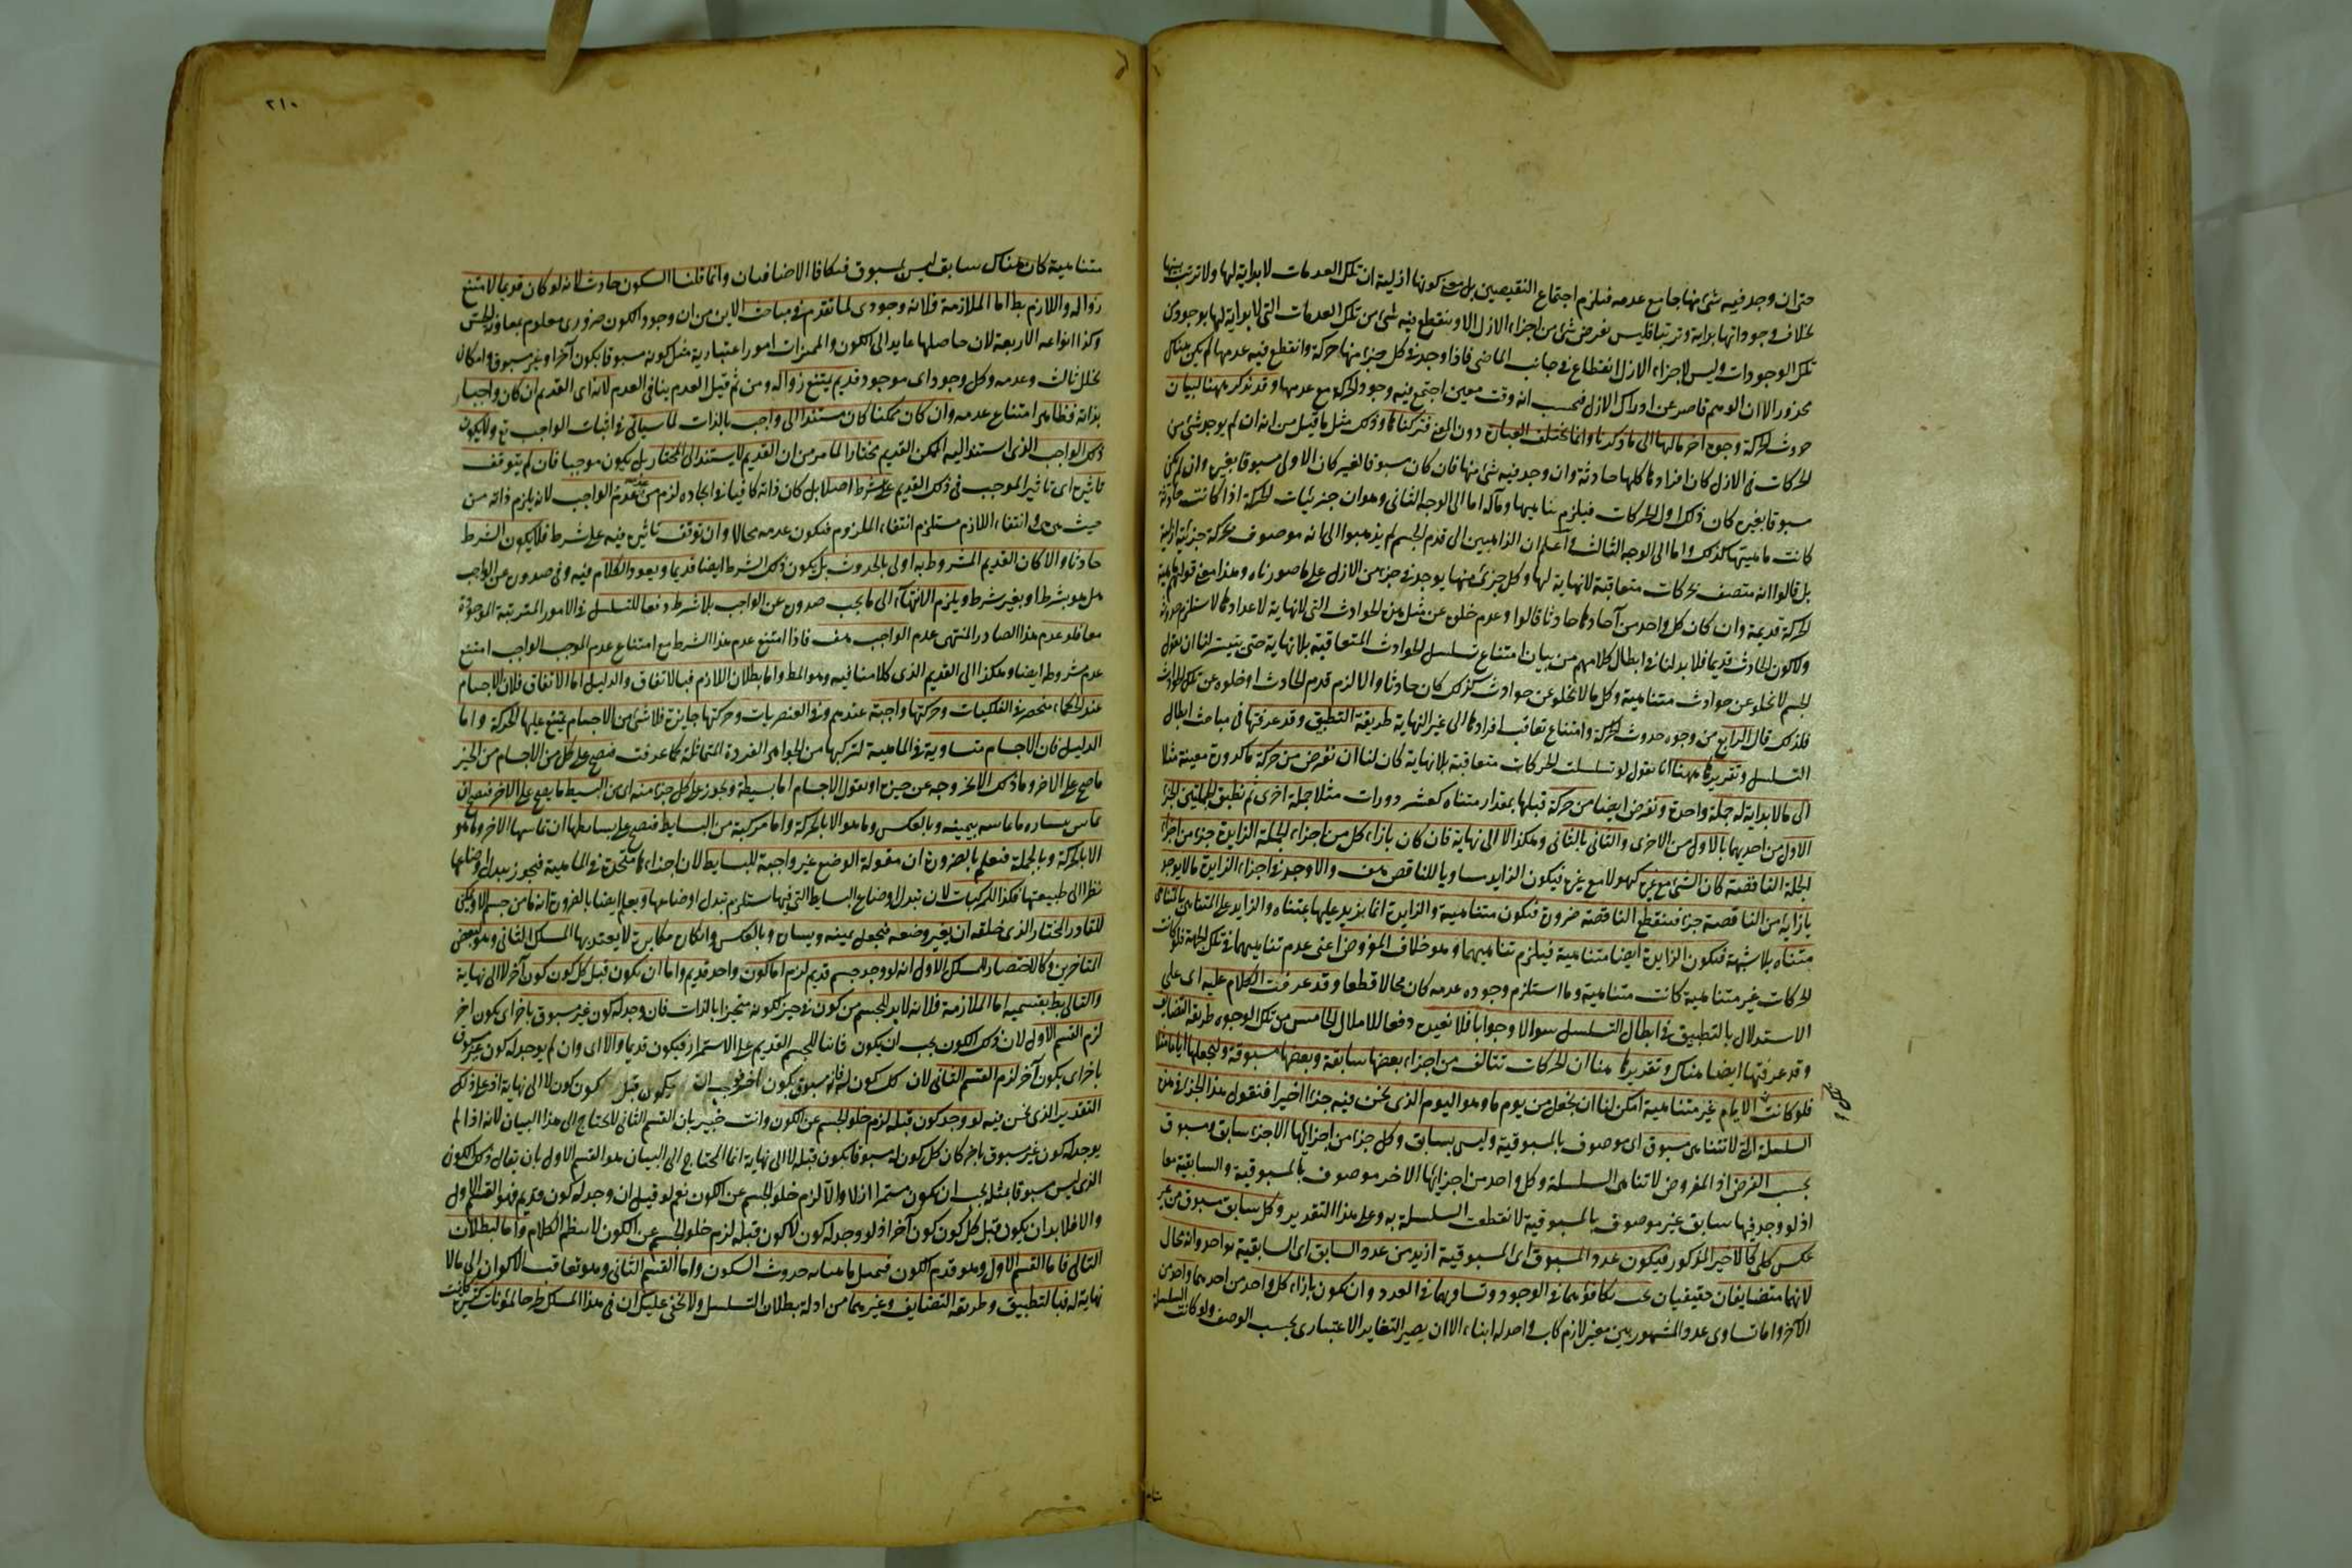 حتى ان وجد فيه شئ منها جامع عدمه فيلزم اجتماع النقيضين بل معنى كونها ازلية ان تلك العدمات لا بداية لها ولا ترتب بينها
بخلاف وجوداتها بداية وترتبا فليس بفرض شئ من اجزاء الازل الا وينقطع فيه شئ من تلك العدمات التى لا بداية لها بوجود من
تلك الوجودات وليس لاجزاء الازل انقطاع فى جانب الماضى فاذا وجد فى كل جزء منها حركة وانقطع فيه عدمها لم يكن هناك
محذور الا ان الوهم قاصر عن ادراك الازل فيحسب انه وقت معين اجتمع فيه وجود الحركة مع عدمها وقد تذكر ههنا لبيان
حدوث الحركة وجوه اخر مالها الى ما ذكرنا وانما يختلف العبارة دون المعنى فتركناها وذلك مثل ما قيل من انه ان لم يوجد شئ من
الحركات فى الازل كان افرادها كلها حادثة وان وجد فيه شئ منها فان كان مسبوقا لغيره كان الاولى مسبوقا بغيره وان لم يكن
مسبوقا بغيره كان ذلك اول الحركات فيلزم تناهيها ومآله اما الى الوجه الثانى وهو ان جزئيات الحركة اذا كانت حادثة
كانت ماهيتها كذلك واما الى الوجه الثالث واعلم ان الذاهبين الى قدم الجسم لم يذهبوا الى انه موصوف بحركة جزئية ازلية
بل قالوا انه متصف بحركات متعاقبة لا نهاية لها وكل جزئى منها يوجد فى جزء من الازل على ما صورناه وهذا معنى قولهم ماهية
الحركة قديمة وان كان كل واحد من آحادها حادثا قالوا وعدم خلوه عن مثل هذه الحوادث التى لا نهاية لاعدادها لا يستلزم حدوثه
ولا كون الحادث قديما فلا بد لنا فى ابطال كلامهم من بيان امتناع تسلسل الحوادث المتعاقبة بلا نهاية حتى يتيسر لنا ان نقول
الجسم لا يخلو عن حوادث متناهية وكل ما لا يخلو عن حوادث كذلك كان حادثا والا لزم قدم الحادث او خلوه عن تلك الحوادث
فلذلك قال الرابع من وجوه حدوث الحركة وامتناع تعاقب افرادها الى غير النهاية طريقة التطبيق وقد عرفتها فى مباحث ابطال
التسلسل وتقريرها ههنا انا نقول لو تسلسلت الحركات متعاقبة بلا نهاية كان لنا ان نفرض من حركة ما كدورة معينة مثلا
الى ما لا بداية له جملة واحدة ونفرض ايضا من حركة قبلها بمقدار متناه كعشر دورات مثلا جملة اخرى ثم نطبق الجملتين الجزء
الاول من احديهما بالاول من الاخرى والثانى بالثانى وهكذا لا الى نهاية فان كان بازاء كل من اجزاء الجملة الزايدة جزء من اجزاء
الجملة الناقصة كان الشئ مع غيره كهو لا مع غيره فيكون الزايد مساويا للناقص هف والا وجد فى اجزاء الزايدة ما لا يوجد
بازايه من الناقصة جزء فينقطع الناقصة ضرورة فيكون متناهية والزايدة انما يزيد عليها بمتناه والزايد على المتناهى بالمتناهى
متناه بلا شبهة فيكون الزايدة ايضا متناهية فيلزم تناهيهما وهو خلاف المفروض اعنى عدم تناهيهما فى تلك الجهة فلو كانت
الحركات غير متناهية كانت متناهية وما استلزم وجوده عدمه كان محالا قطعا وقد عرفت الكلام عليه اى على
الاستدلال بالتطبيق فى ابطال التسلسل سوالا وجوابا فلا نعيده دفعا للاملال الخامس من تلك الوجوه طريقة التضايف
وقد عرفتها ايضا هناك وتقريرها هنا ان الحركات تتالف من اجزاء بعضها سابقة وبعضها مسبوقة ولنجعلها اياما مثلا
فلو كانت الايام غير متناهية امكن لنا ان نجعل من يوم ما وهو اليوم الذى نحن فيه جزءا اخيرا فنقول هذا الجزء من
السلسلة التى لا تتناهى مسبوق اى موصوف بالمسبوقية وليس بسابق وكل جزء من اجزائها الاجزء سابق ومسبوق
بحسب الفرض اذ المفروض لا تناهى السلسلة وكل واحد من اجزائها الاخر موصوف بالمسبوقية والسابقية معا
اذ لو وجد فيها سابق غير موصوف بالمسبوقية لانقطعت السلسلة به وعلى هذا التقدير وكل سابق مسبوق من غير
عكس كلى كالاخير المذكور فيكون عدد المسبوق اى المسبوقية ازيد من عدد السابق اى السابقية بواحد وانه محال
لانهما متضايفان حقيقيان يجب تكافؤهما فى الوجود وتساويهما فى العدد وان يكون بازاء كل واحد من احدهما واحد من
الآخر واما تساوى عدد المشهورين فغير لازم كاب واحد له ابناء الا ان يصير التغاير الاعتبارى بحسب الوصف ولو كانت السلسلة
٢١٠
متناهية كان هناك سابق ليس بمسبوق فتكافا الاضافيان وانما قلنا السكون حادث لانه لو كان قديما لامتنع
زواله واللازم بط اما الملازمة فلانه وجودى لما تقدم فى مباحث الاين من ان وجود الكون ضرورى معلوم بمعاونة الحس
وكذا انواعه الاربعة لان حاصلها عايد الى الكون والمميزات امور اعتبارية مثل كونه مسبوقا بكون آخر او غير مسبوق وامكان
تخلل ثالث وعدمه وكل وجود اى موجود قديم يمتنع زواله ومن ثم قيل العدم ينافى العدم لانه اى القديم ان كان واجبا
بذاته فظاهر امتناع عدمه وان كان ممكنا كان مستندا الى واجب بالذات لما سياتى فى اثبات الواجب تع ولا يكون
ذلك الواجب الذى استند اليه الممكن القديم مختارا لما مر من ان القديم لا يستند الى المختار بل يكون موجبا فان لم يتوقف
تاثيره اى تاثير الموجب فى ذلك القديم على شرط اصلا بل كان ذاته كافيا فى ايجاده لزم من عدمه عدم الواجب لانه يلزم ذاته من
حيث هى هى وانتفاء اللازم مستلزم انتفاء الملزوم فيكون عدمه محالا وان توقف تاثيره فيه على شرط فلا يكون الشرط
حادثا والا كان القديم المشروط به اولى بالحدوث بل يكون ذلك الشرط ايضا قديما ويعود الكلام فيه وفى صدوره عن الواجب
هل هو بشرط او بغير شرط ويلزم الانتهاء الى ما يجب صدوره عن الواجب بلا شرط دفعا للتسلسل فى الامور المترتبة الموجودة
معا فلو عدم هذا الصادر المنتهى عدم الواجب هف فاذا امتنع عدم هذا الشرط مع امتناع عدم الموجب الواجب امتنع
عدم مشروطه ايضا وهكذا الى القديم الذى كلامنا فيه وهو المط واما بطلان اللازم فبالاتفاق والدليل اما الاتفاق فلان الاجسام
عند الحكماء منحصرة فى الفلكيات وحركتها واجبة عندهم وفى العنصريات وحركتها جايزة فلا شئ من الاجسام يمتنع عليها الحركة واما
الدليل فان الاجسام متساوية فى الماهية لتركبها من الجواهر الفردة المتماثلة كما عرفت فيصح على كل من الاجسام من الحيز
ما صح على الآخر وما ذلك الا بخروجه عن حيزه او نقول الاجسام اما بسيطة ويجوز على كل جزء منه اى من البسيط ما يصح على الآخر فيصح ان
يماس يساره ما ماسه يمينه وبالعكس وما هو الا بالحركة واما مركبة من البسايط فيصح على بسايطها ان تماسها الآخر وما هو
الا بالحركة وبالجملة فنعلم بالضرورة ان مقولة الوضع غير واجبة للبسايط لان اجزاءها متحدة فى الماهية فيجوز تبدل اوضاعها
نظرا الى طبيعتها فكذا المركبات لان تبدل اوضاع البسايط التى فيها يستلزم تبدل اوضاعها ويعلم ايضا بالضرورة انه ما من جسم الا ويمكن
للقادر المختار الذى خلقه ان يغير وضعه فيجعل يمينه يساره وبالعكس وانكاره مكابرة لا يعتد بها المسلك الثانى وهو لبعض
المتاخرين وكالاختصار للمسلك الاول انه لو وجد جسم قديم لزم اما كون واحد قديم واما ان يكون قبل كل كون كون آخر لا الى نهاية
والتالى بط بقسميه اما الملازمة فلانه لا بد للجسم من كون فى حيز لكونه متحيزا بالذات فان وجد له كون غير مسبوق باخر اى بكون اخر
لزم القسم الاول لان ذلك الكون يجب ان يكون ثابتا للجسم القديم على الاستمرار فيكون قديما والا اى وان لم يوجد له كون غير مسبوق
باخر اى بكون آخر لزم القسم الثانى لان كل كون له فانه مسبوق بكون آخر فوجب ان يكون قبل كون كون لا الى نهاية اذ على ذلك
التقدير الذى نحن فيه لو وجد كون قبله لزم خلو الجسم عن الكون وانت خبير بان القسم الثانى لا يحتاج الى هذا البيان لانه اذا لم
يوجد له كون غير مسبوق باخر كان كل كون له مسبوقا بكون قبله لا الى نهاية انما المحتاج الى البيان هو القسم الاول بان يقال ذلك الكون
الذى ليس مسبوقا بمثله يجب ان يكون مستمرا ازلا والا لزم خلو الجسم عن الكون نعم لو قيل ان وجد له كون قديم فهو القسم الاول
والا فلا بد ان يكون قبل كل كون كون آخر اذ لو وجد له كون لا كون قبله لزم خلو الجسم عن الكون لانتظم الكلام واما بطلان
التالى فاما القسم الاول وهو قدم الكون فبمثل ما بيناه حدوث السكون واما القسم الثانى وهو تعاقب الاكوان الى ما لا
نهاية له فبالتطبيق وطريقة التضايف وغيرهما من ادلة بطلان التسلسل ولا يخفى عليك ان فى هذا المسلك طرحا لمؤنات كثيرة كانت